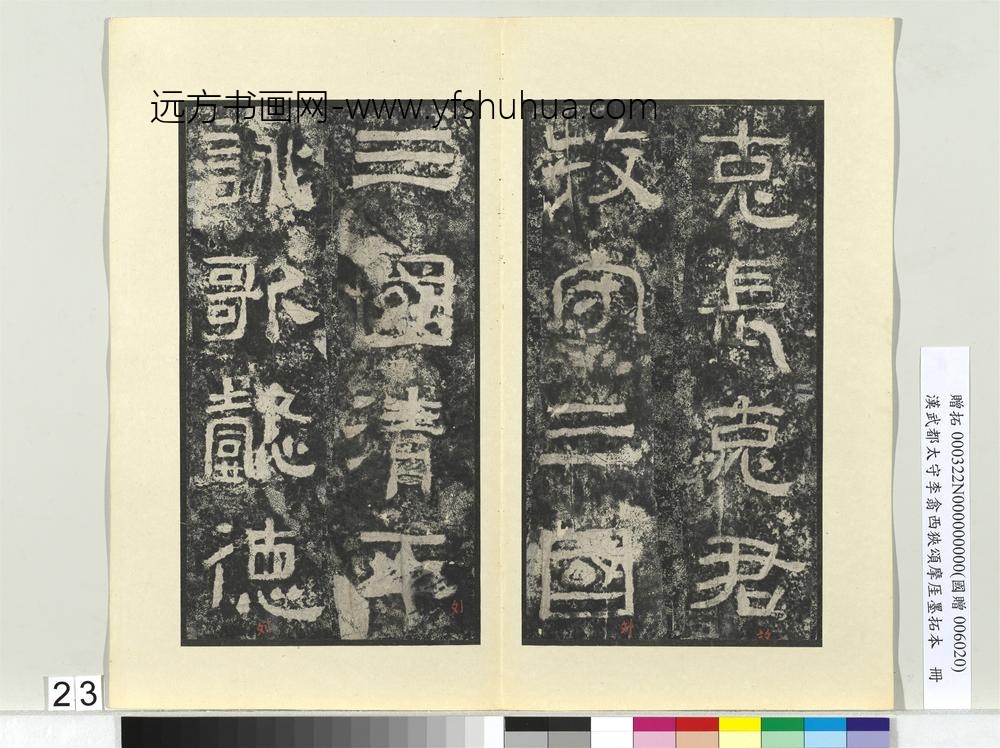 远方书画网-www.yfshuhua.com
克長克君
牧守三國
三國清平
詠歌懿德
贈拓 000322N000000000(國贈 006020)
漢武都太守李翕西狹頌摩厓墨拓本 冊
23